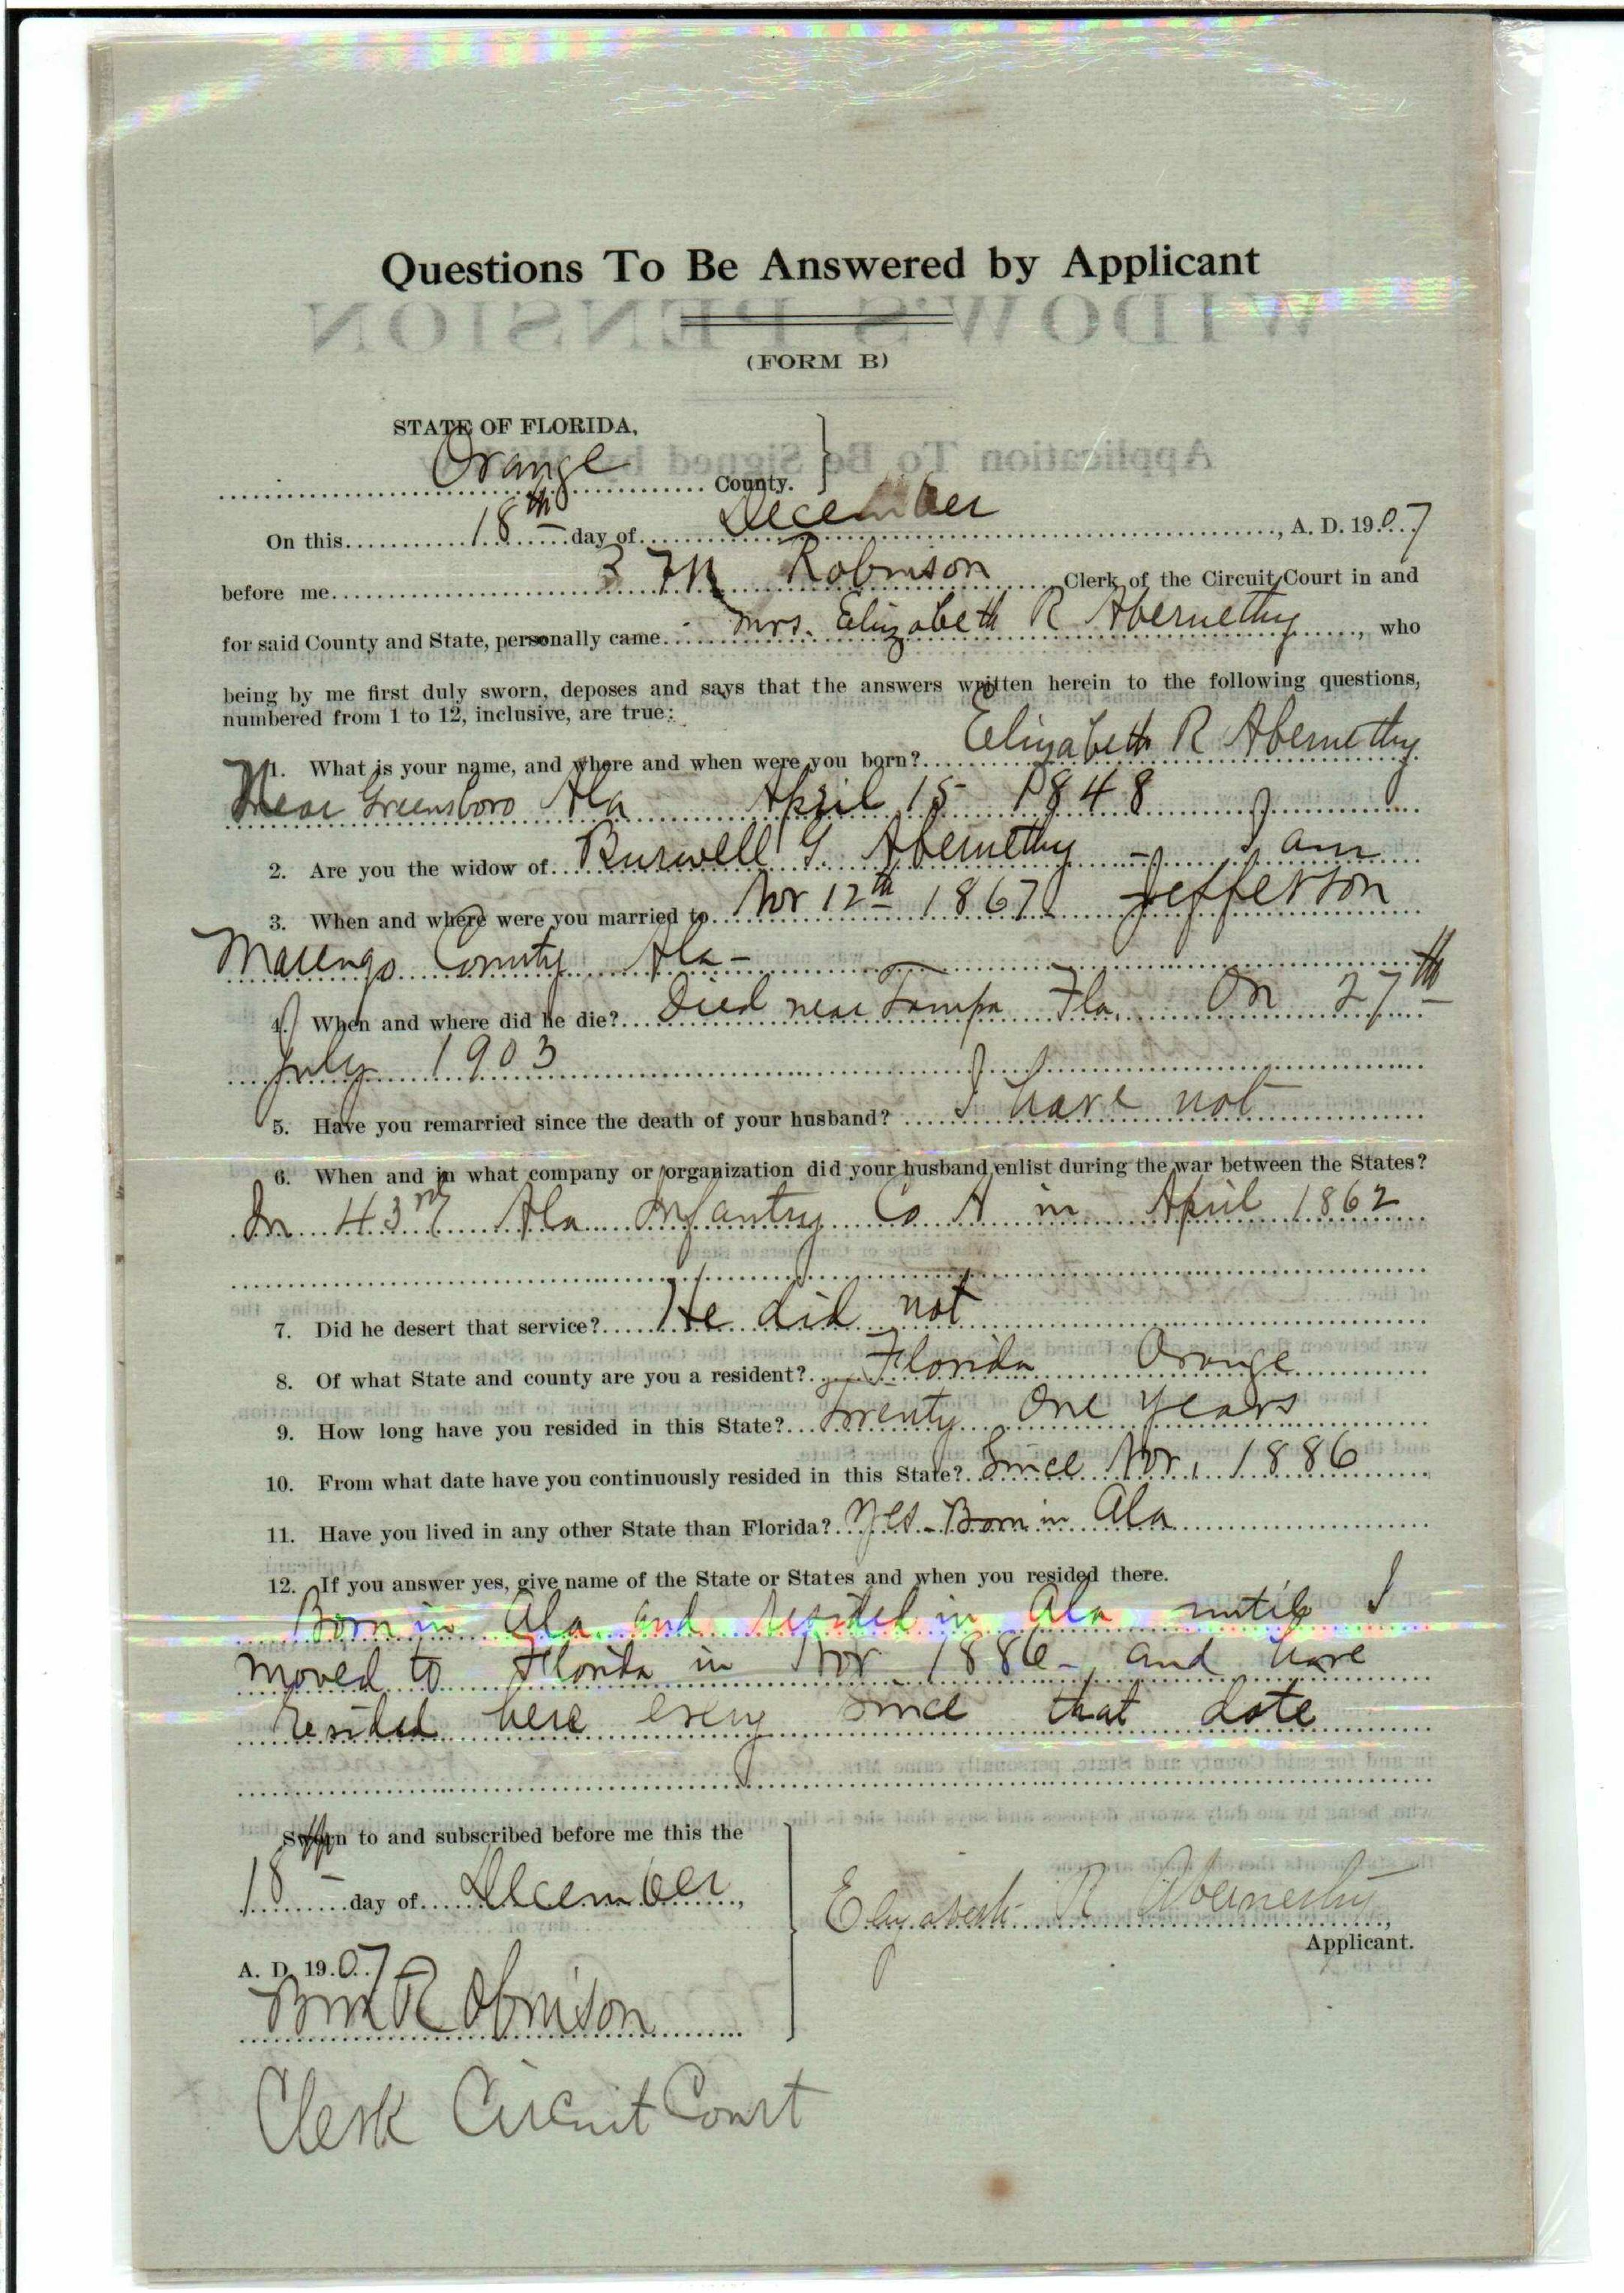 Questions To Be Answered by Applicant
(FORM B)
STATE OF FLORIDA,
Orange County.
On this 18th day of December, A. D. 1907
before me B M Robinson Clerk of the Circuit Court in and
for said County and State, personally came Mrs. Elizabeth R Abernethy, who
being by me first duly sworn, deposes and says that the answers written herein to the following questions,
numbered from 1 to 12, inclusive, are true:
1. What is your name, and where and when were you born? Elizabeth R Abernethy
Near Greensboro Ala April 15 1848
2. Are you the widow of Burwell G. Abernethy - I am
3. When and where were you married to Nov 12th 1867 Jefferson
Marengo County Ala -
4. When and where did he die? Died near Tampa Fla. On 27th
July 1903
5. Have you remarried since the death of your husband? I have not
6. When and in what company or organization did your husband enlist during the war between the States?
In 43rd Ala Infantry Co A in April 1862
7. Did he desert that service? He did not
8. Of what State and county are you a resident? Florida Orange
9. How long have you resided in this State? Twenty One years
10. From what date have you continuously resided in this State? Since Nov. 1886
11. Have you lived in any other State than Florida? Yes - Born in Ala
12. If you answer yes, give name of the State or States and when you resided there.
Born in Ala and resided in Ala until I
moved to Florida in Nov 1886 - and have
resided here every since that date
Sworn to and subscribed before me this the
18th day of December,
A. D. 1907
B M Robinson
Clerk Circuit Court
Elizabeth R Abernethy,
Applicant.